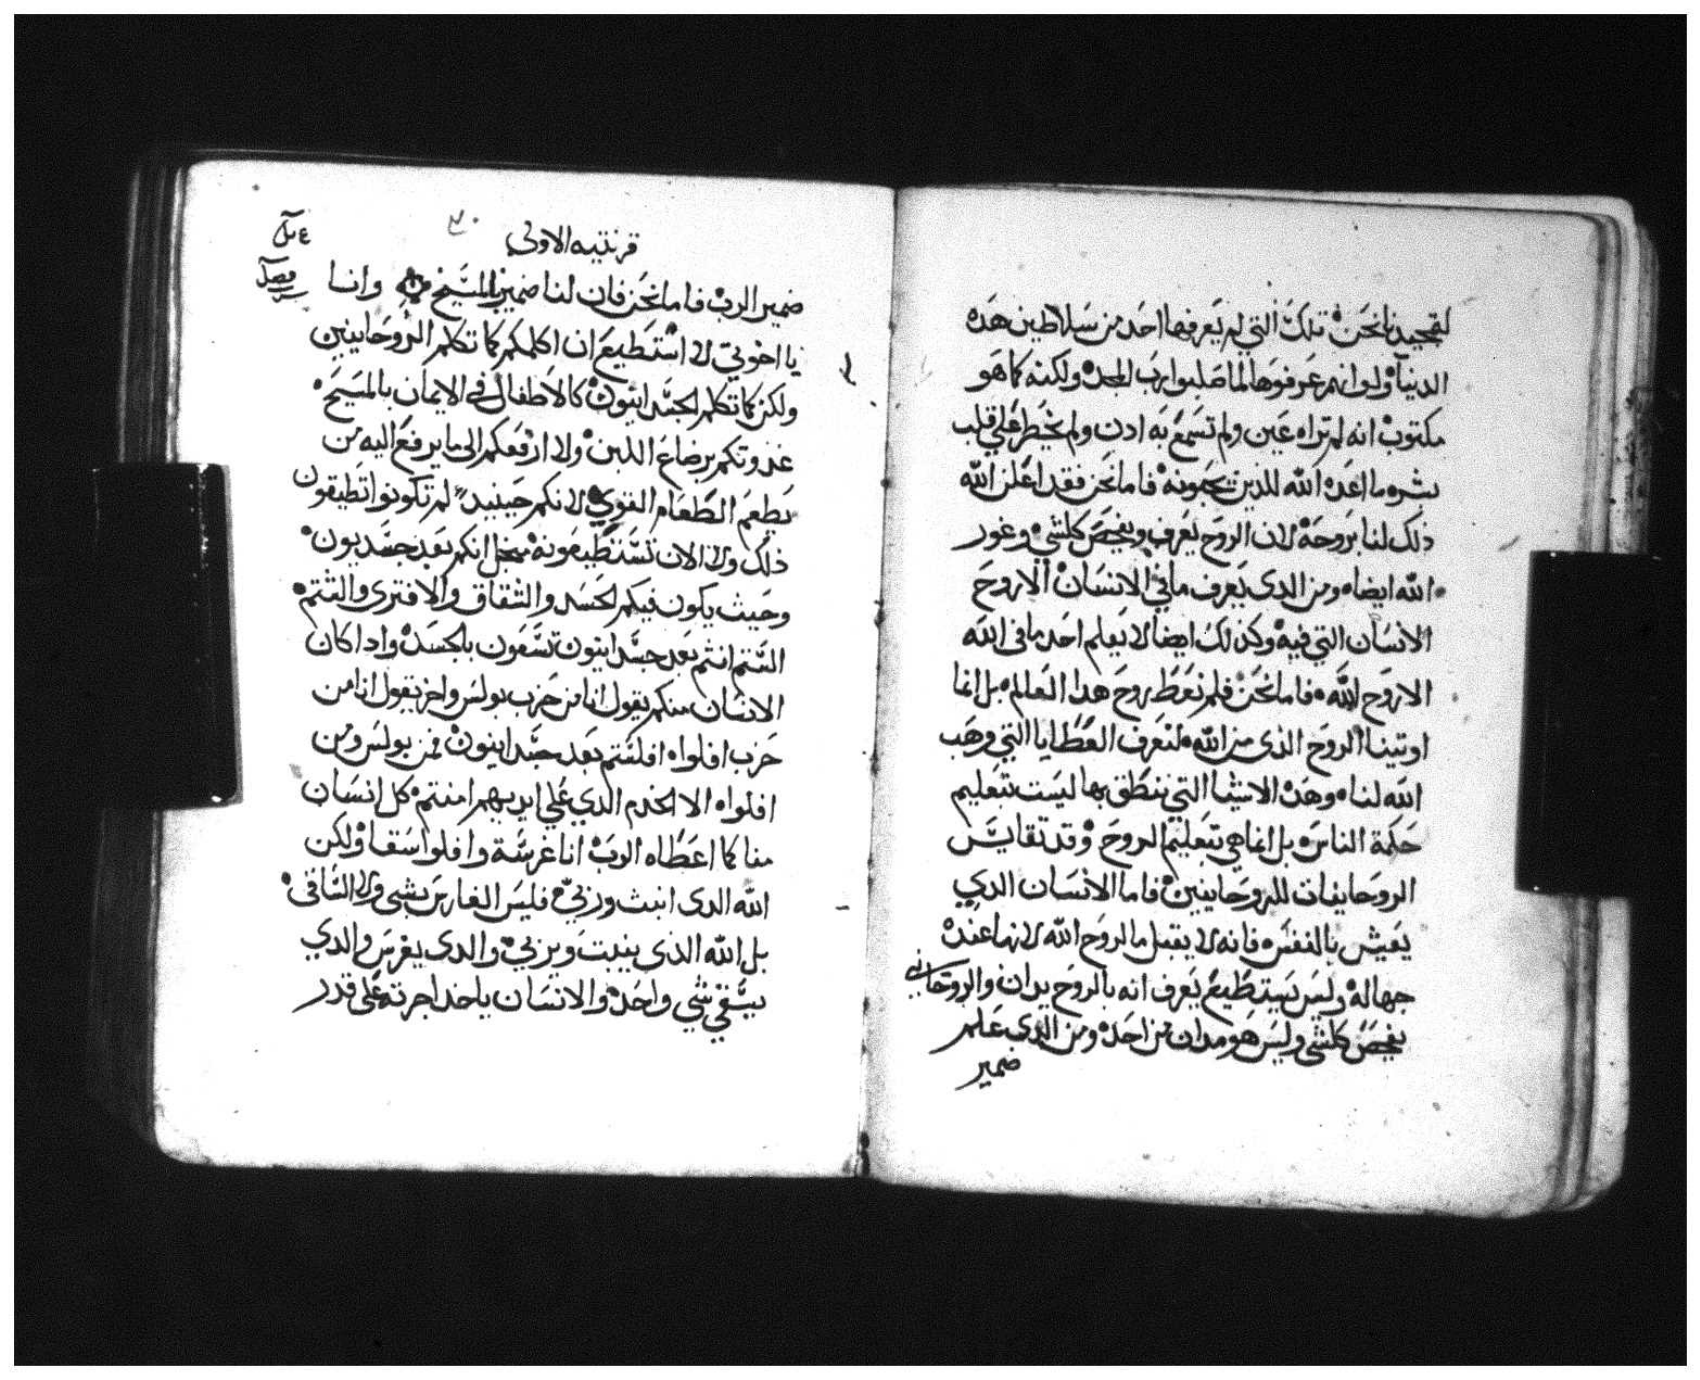 لتمجيدنا نحن تلك التي لم يعرفها احد من سلاطين هده
الدنيا ولو انهم عرفوها لما صلبوا رب المجد ولكنه كما هو
مكتوب انه لم تراه عين ولم تسمع به ادن ولم يخطر علي قلب
بشر ما اعده الله للدين يحبونه فاما نحن فقد اعلن الله
دلك لنا بروحه لان الروح يعرف ويفحص كلشي وغور
الله ايضا ومن الدى يعرف ما في الانسان الا روح
الانسان التي فيه وكذلك ايضا لا يعلم احد ما في الله
الا روح الله فاما نحن فلم نعط روح هدا العالم بل انما
اوتينا الروح الذى من الله لنعرف العطايا التي وهب
الله لنا وهذه الاشيا التي ننطق بها ليست بتعليم
حكمة الناس بل انما هي بتعليم الروح وقد نقايس
الروحانيات للروحانيين فاما الانسان الدي
يعيش بالنفس فانه لا يقبل ما لروح الله لانها عنده
جهاله وليس يستطيع يعرف انه بالروح يدان والروحاني
يفحص كلشي وليس هو مدان من احد ومن الدي علم
ضمير
قرنتيه الاولي
٣٠
فصل
ضمير الرب فاما نحن فان لنا ضمير المسيح وانا
يا اخوتي لا استطيع ان اكلمكم كما تكلم الروحانيين
ولكن كما تكلم الجسدانيون كالاطفال في الايمان بالمسيح
غذوتكم برضاع اللبن ولا ارفعكم الى ما يرفع اليه من
يطعم الطعام القوي لانكم حينيد لم تكونوا تطيقون
ذلك ولا الان تستطيعونه انكم بعد جسديون
وحيث يكون فيكم الحسد والشقاق والافترى والشتم
الستم انتم بعد جسدانيون تسعون بالجسد وادا كان
الانسان منكم يقول انا من حزب بولس واخر يقول انا من
حزب افلوا افلستم بعد جسدانيون فمن بولس ومن
افلوا الا الخدم الدي علي ايديهم امنتم كل انسان
منا كما اعطاه الرب انا غرست وافلوا سقا ولكن
الله الدى انبت وربي فليس الغارس بشي ولا الساقي
بل الله الذى ينبت ويربي والدى يغرس والدي
يسقي شي واحد والانسان ياخد اجرته على قدر